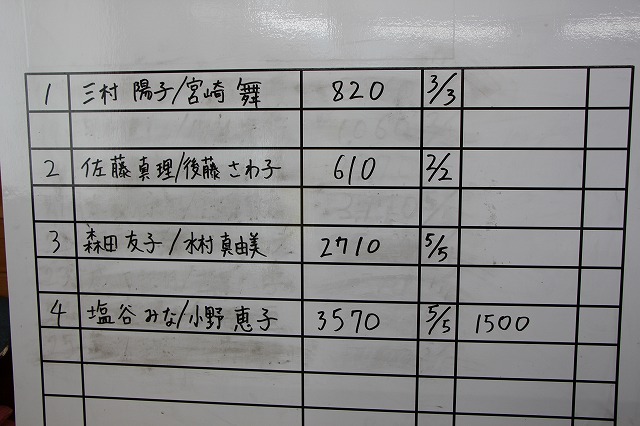 1 三村 陽子/宮崎 舞 820 3/3
2 佐藤 真理/後藤 さわ子 610 2/2
3 森田 友子/水村 真由美 2710 5/5
4 塩谷 みな/小野 恵子 3570 5/5 1500